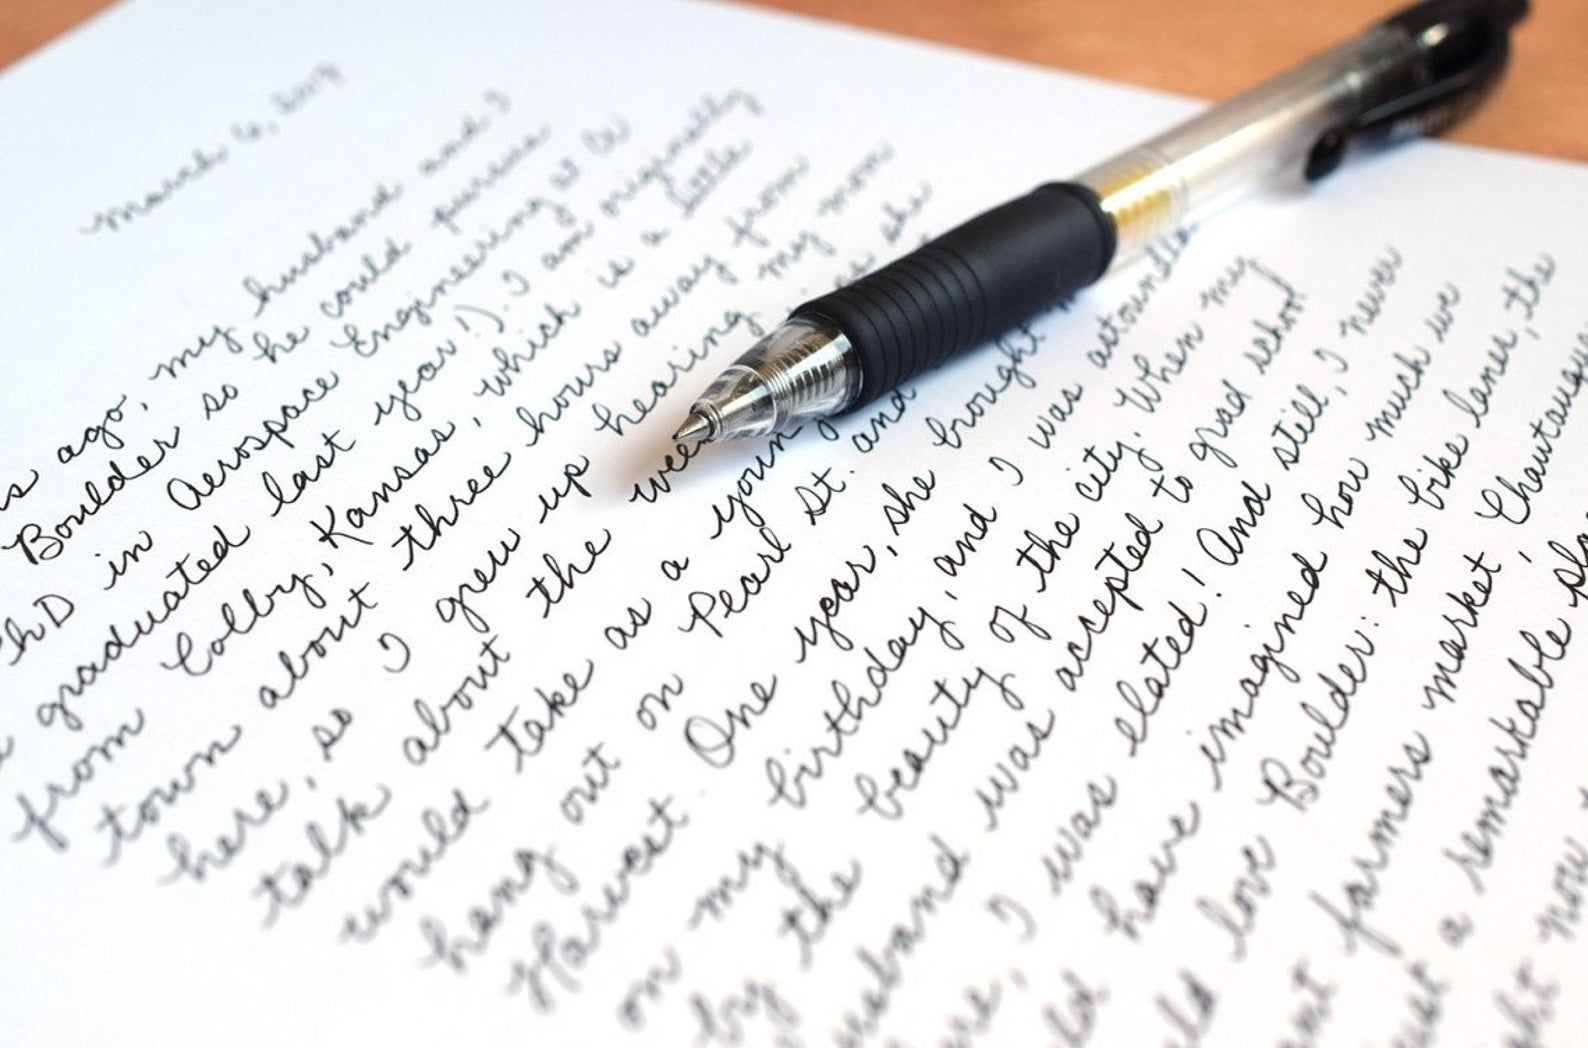 March 6, 2019
s ago, my husband and I
Boulder so he could pursue
PhD in Aerospace Engineering at CU
graduated last year!). I am originally
from Colby, Kansas, which is a little
town about three hours away from
here, so I grew up hearing my mom
talk about the she
would take as a young
hang out on Pearl St. and
Harvest. One year, she brought
on my birthday, and I was astounded
by the beauty of the city. When my
husband was accepted to grad school
I was elated! And still, I never
have imagined how much we
love Boulder: the bike lanes, the
farmers market, Chautauqua
a remarkable
now